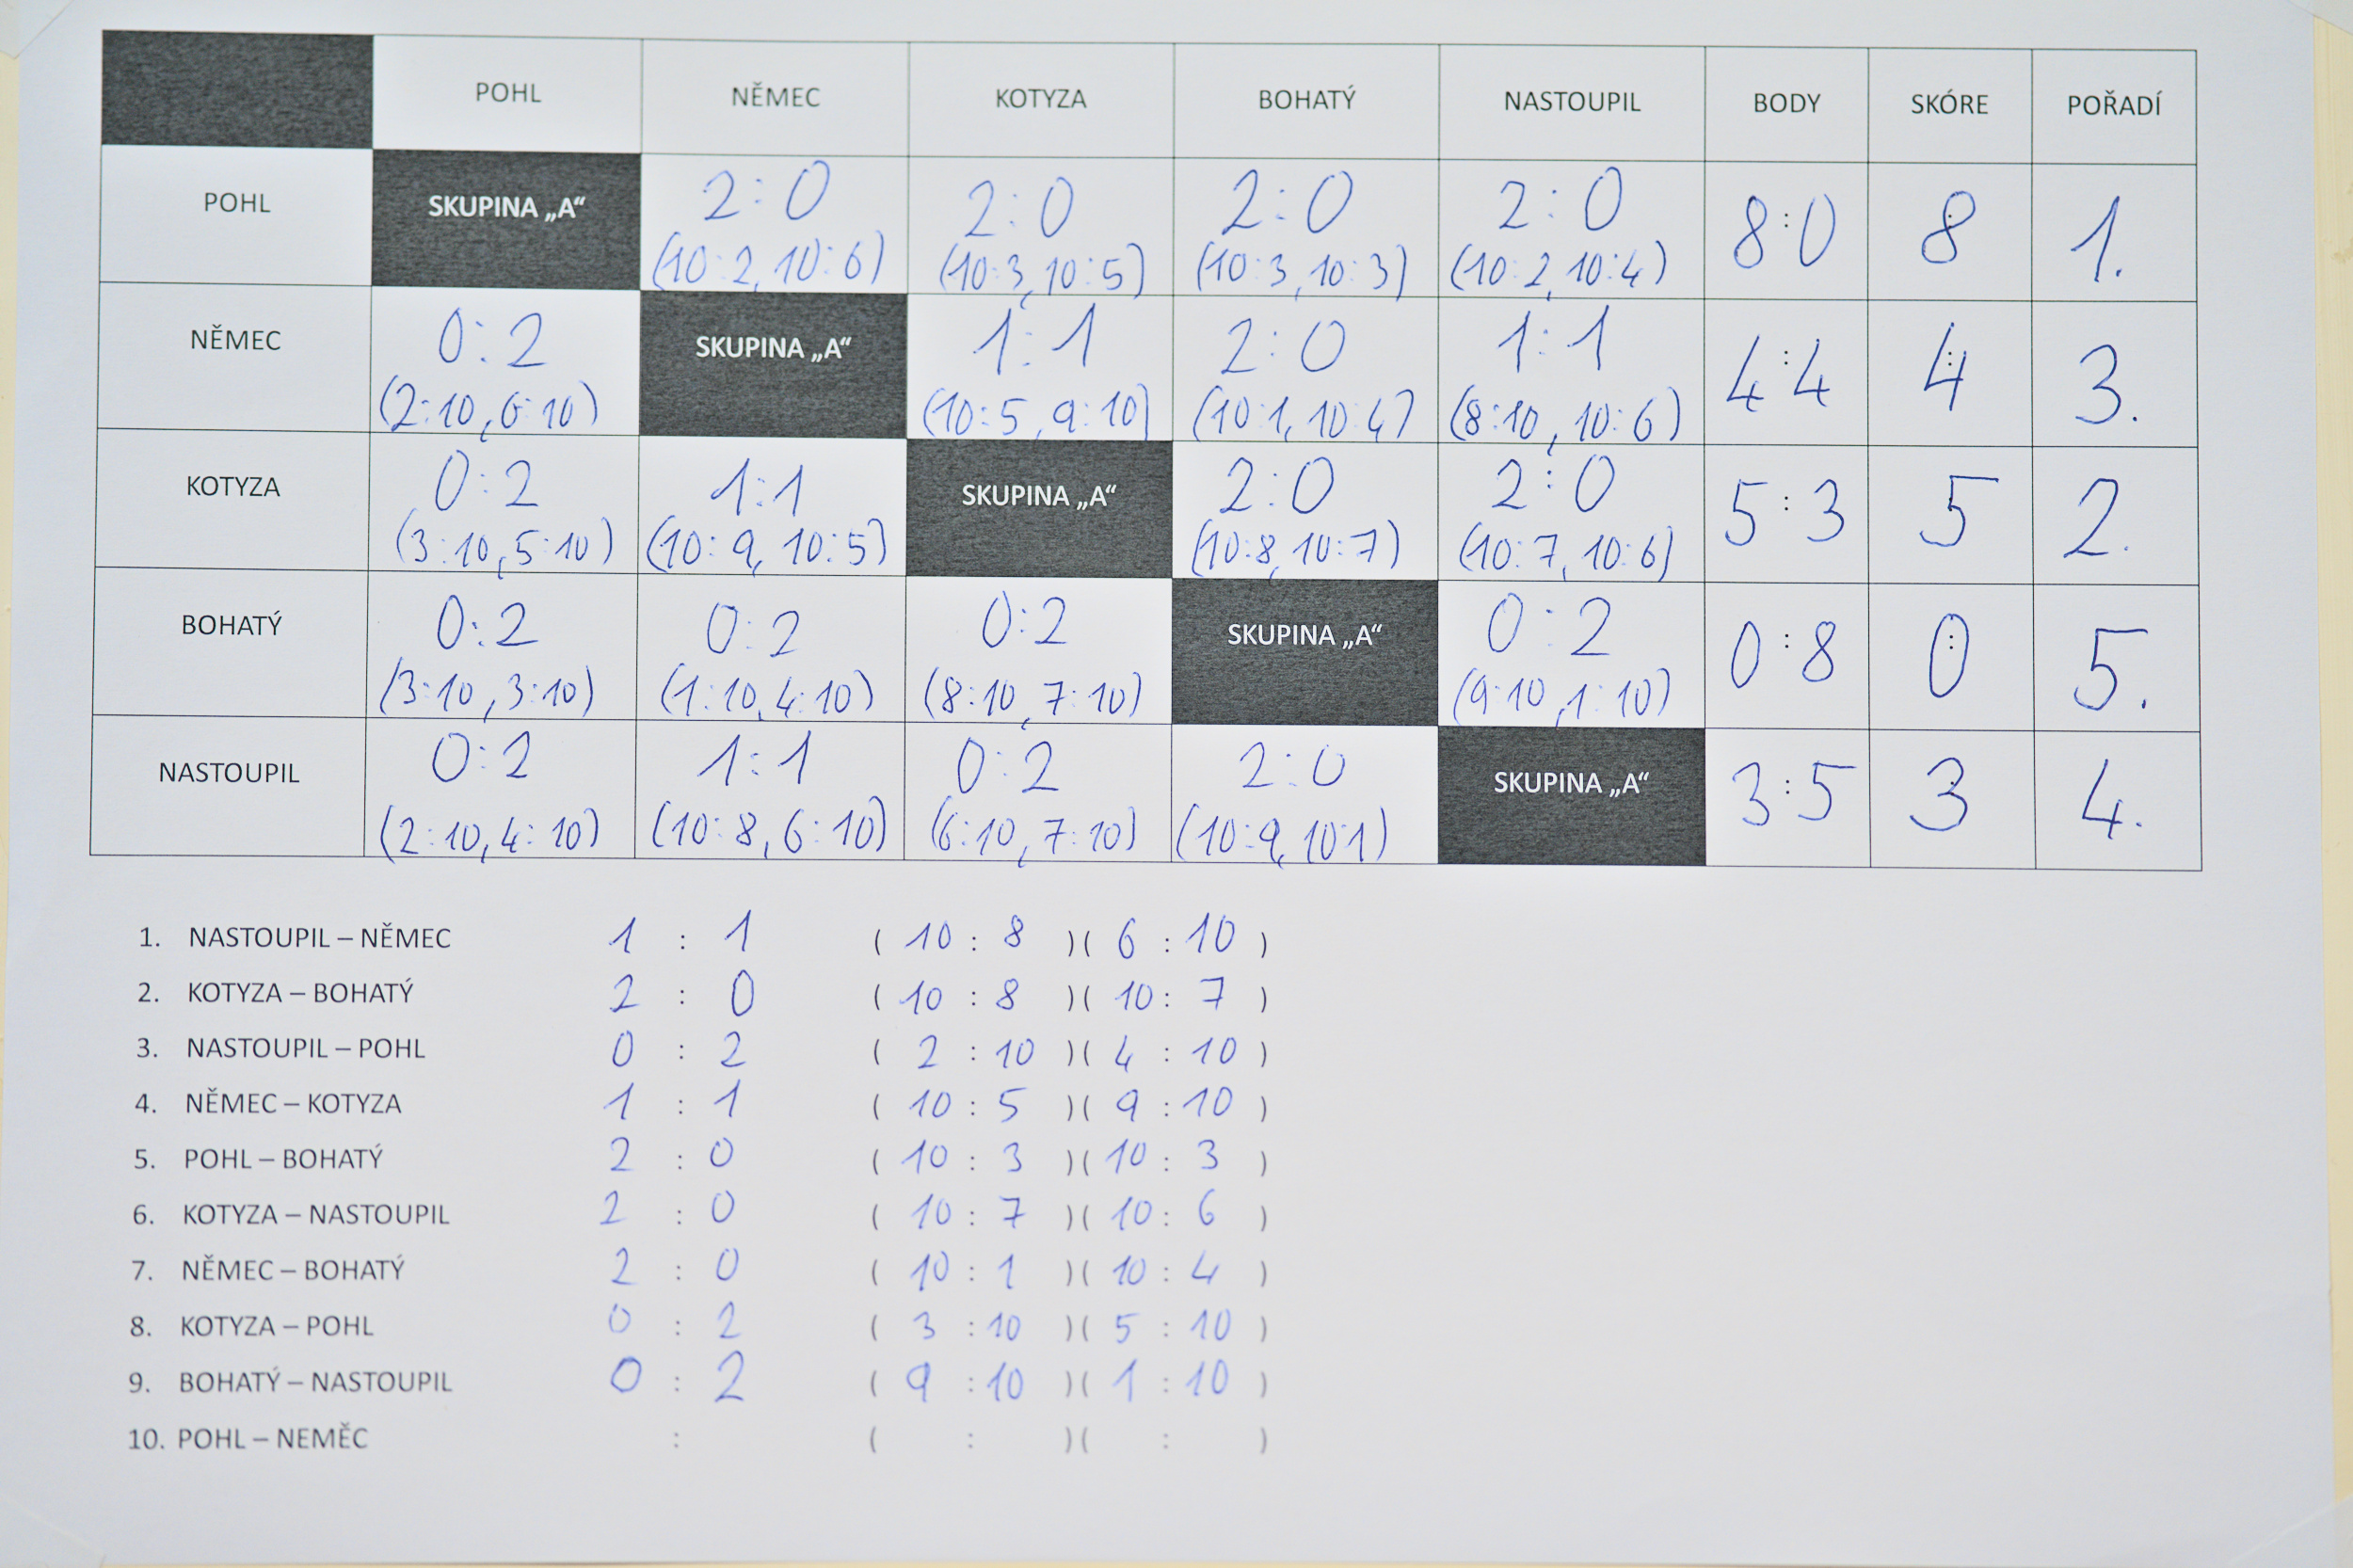 POHL NĚMEC KOTYZA BOHATÝ NASTOUPIL BODY SKÓRE POŘADÍ
POHL SKUPINA „A“ 2:0 2:0 2:0 2:0 8:0 8 1.
(10:2, 10:6) (10:3, 10:5) (10:3, 10:3) (10:2, 10:4)
NĚMEC 0:2 SKUPINA „A“ 1:1 2:0 1:1 4:4 4 3.
(2:10, 6:10) (10:5, 9:10) (10:1, 10:4) (8:10, 10:6)
KOTYZA 0:2 1:1 SKUPINA „A“ 2:0 2:0 5:3 5 2.
(3:10, 5:10) (10:9, 10:5) (10:8, 10:7) (10:7, 10:6)
BOHATÝ 0:2 0:2 0:2 SKUPINA „A“ 0:2 0:8 0 5.
(3:10, 3:10) (1:10, 4:10) (8:10, 7:10) (9:10, 1:10)
NASTOUPIL 0:2 1:1 0:2 2:0 SKUPINA „A“ 3:5 3 4.
(2:10, 4:10) (10:8, 6:10) (6:10, 7:10) (10:9, 10:1)
1. NASTOUPIL – NĚMEC 1 : 1 ( 10 : 8 )( 6 : 10 )
2. KOTYZA – BOHATÝ 2 : 0 ( 10 : 8 )( 10 : 7 )
3. NASTOUPIL – POHL 0 : 2 ( 2 : 10 )( 4 : 10 )
4. NĚMEC – KOTYZA 1 : 1 ( 10 : 5 )( 9 : 10 )
5. POHL – BOHATÝ 2 : 0 ( 10 : 3 )( 10 : 3 )
6. KOTYZA – NASTOUPIL 2 : 0 ( 10 : 7 )( 10 : 6 )
7. NĚMEC – BOHATÝ 2 : 0 ( 10 : 1 )( 10 : 4 )
8. KOTYZA – POHL 0 : 2 ( 3 : 10 )( 5 : 10 )
9. BOHATÝ – NASTOUPIL 0 : 2 ( 9 : 10 )( 1 : 10 )
10. POHL – NEMĚC : ( : )( : )